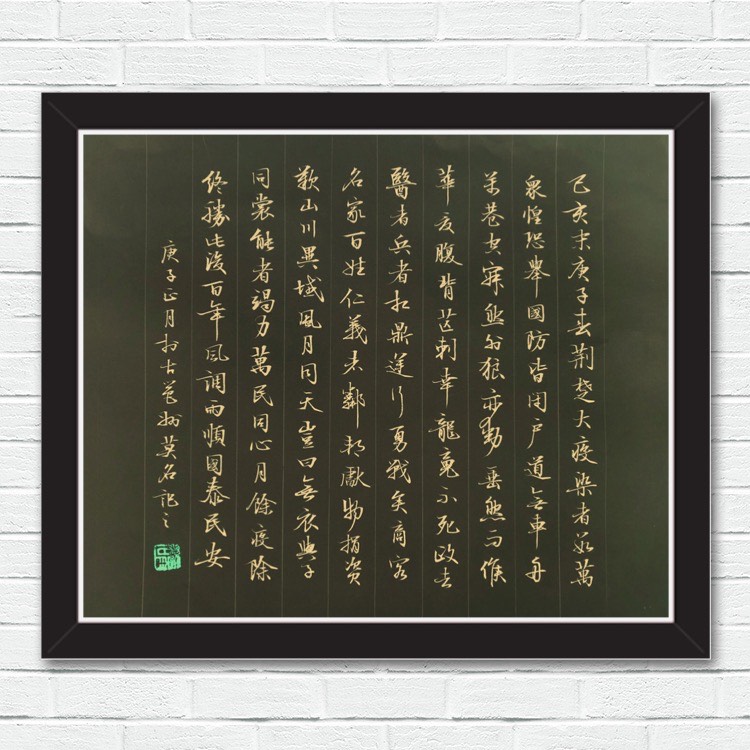 己亥末庚子春荆楚大疫染者數萬
衆惶恐舉國防皆閉户道無車舟
萬巷空寂然外狼亦動垂涎而候
華夏腹背芒刺幸龍魂不死政者
醫者兵者扛鼎逆行勇戰矣商客
名家百姓仁義者鄰邦獻物捐資
歎山川異域風月同天豈曰無衣與子
同裳能者竭力萬民同心月餘疫除
終勝此後百年風調雨順國泰民安
庚子正月於古莫名記之